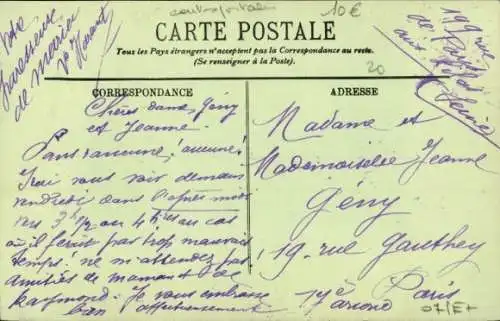 10€
CARTE POSTALE
Tous les Pays étrangers n'acceptent pas la Correspondance au recto.
(Se renseigner à la Poste).
20
CORRESPONDANCE
Chères dame, Gény
et Jeanne.
Sans rancune! aucune!
J'irai vous voir demain
vendredi dans l'après midi
vers 3h 1/2 ou 4 heures au cas
où il ferait par trop mauvais
temps! ne m'attendez pas
amitiés de maman et de
Raymond. Je vous embrasse
bien affectueusement
Votre
paresseuse
de
ADRESSE
Madame et
Mademoiselle Jeanne
Gény
19 rue Gauthey
Paris
17e arrond
199 rue
de
Seine